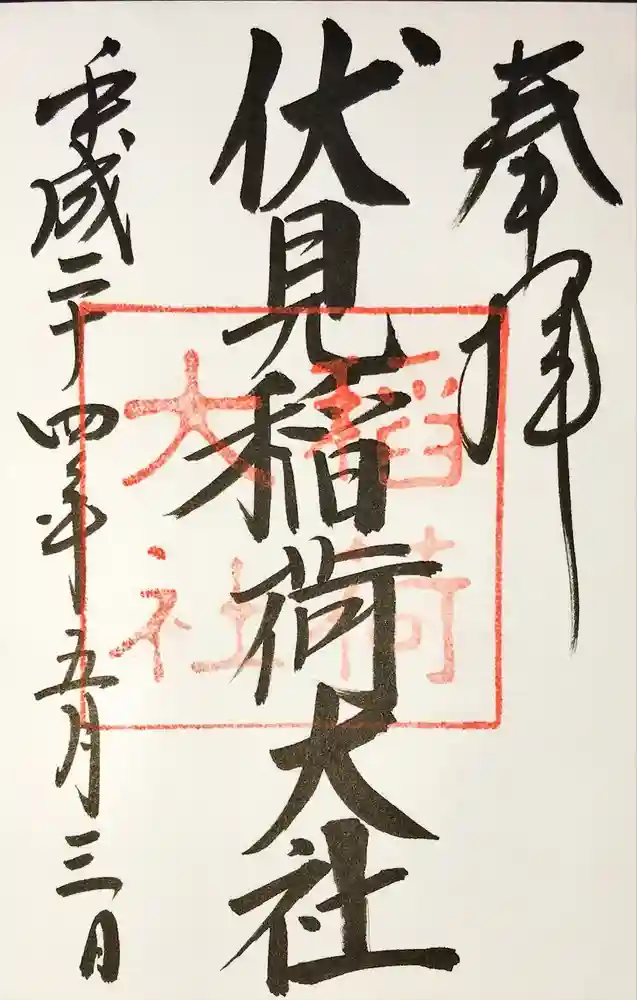 奉拝
伏見稲荷大社
稲荷
大社
平成二十四年五月三日